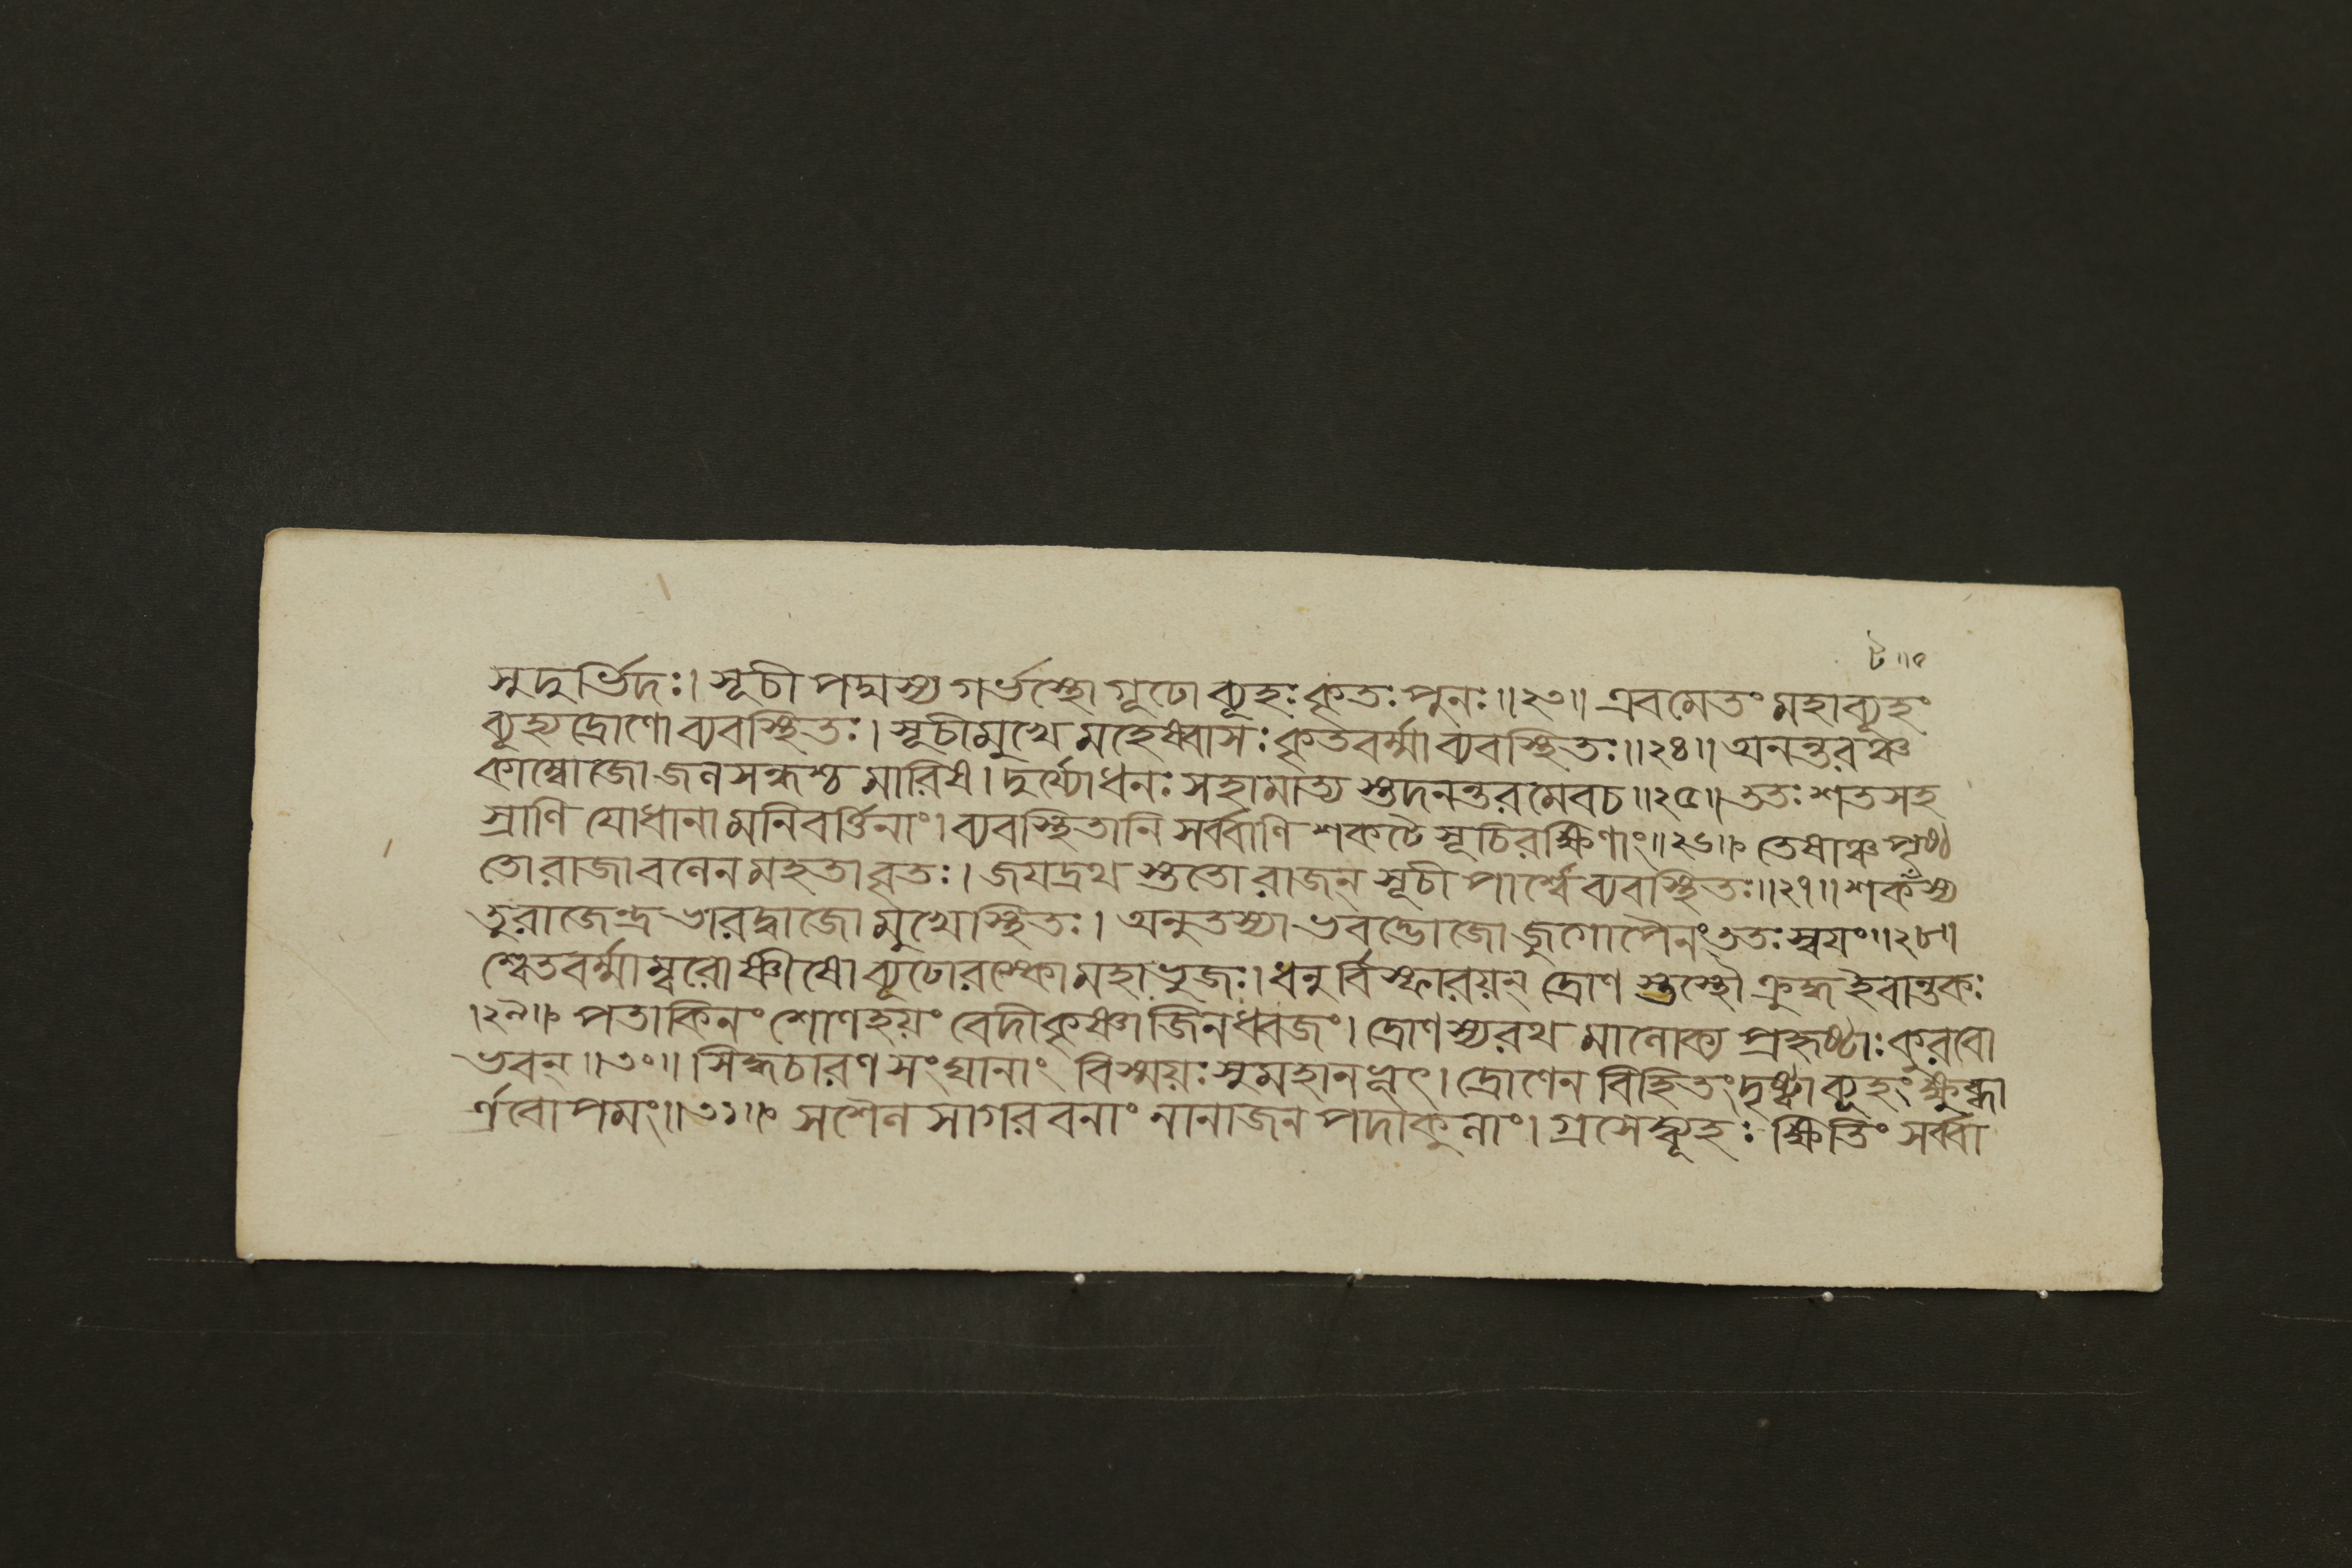 ট ॥ ৫
সুদুর্ভিদঃ। সূচী পদ্মস্য গর্ভস্থো গূঢো ব্যূহঃ কৃতঃ পুনঃ॥২৩॥ এবমেতং মহাব্যূহং
ব্যূহ্য দ্রোণো ব্যবস্থিতঃ। সূচীমুখে মহেষ্বাসঃ কৃতবর্ম্মা ব্যবস্থিতঃ॥২৪॥ অনন্তরঞ্চ
কাম্বোজো জলসন্ধশ্চ মারিষ। দুর্য্যোধনঃ সহামাত্য স্তদনন্তরমেবচ॥২৫॥ ততঃ শতসহ
স্রাণি যোধানামনিবর্ত্তিনাং। ব্যবস্থিতানি সর্ব্বাণি শকটে সূচিরক্ষিণাং॥২৬॥ তেষাঞ্চ পৃষ্ঠ
তো রাজা বলেন মহতা বৃতঃ। জযদ্রথ স্ততো রাজন্ সূচী পার্শ্বে ব্যবস্থিতঃ॥২৭॥ শকটস্য
তু রাজেন্দ্র ভারদ্বাজো মুখে স্থিতঃ। অনুতস্যা ভবদ্ভোজো জুগোপৈনং ততঃ স্বযং॥২৮॥
শ্বেতবর্ম্মাম্বরোষ্ণীষো ব্যূঢোরস্কো মহাভুজঃ। ধনুর্বিস্ফারয়ন্ দ্রোণ স্তস্থৌ ক্রুদ্ধ ইবান্তকঃ
।২৯॥ পতাকিনং শোণহয়ং বেদীকৃষ্ণাজিনধ্বজং। দ্রোণস্য রথ মালোক্য প্রহৃষ্টাঃ কুরবো
ভবন্॥৩০॥ সিদ্ধচারণ সংঘানাং বিস্ময়ঃ সুমহানভূৎ। দ্রোণেন বিহিতং দৃষ্ট্বা ব্যূহং ক্ষুব্ধা
র্ণবোপমং॥৩১॥ সশৈল সাগরবনাং নানাজনপদাকুলাং। গ্রসেদ্ব্যূহঃ ক্ষিতিং সর্ব্বা